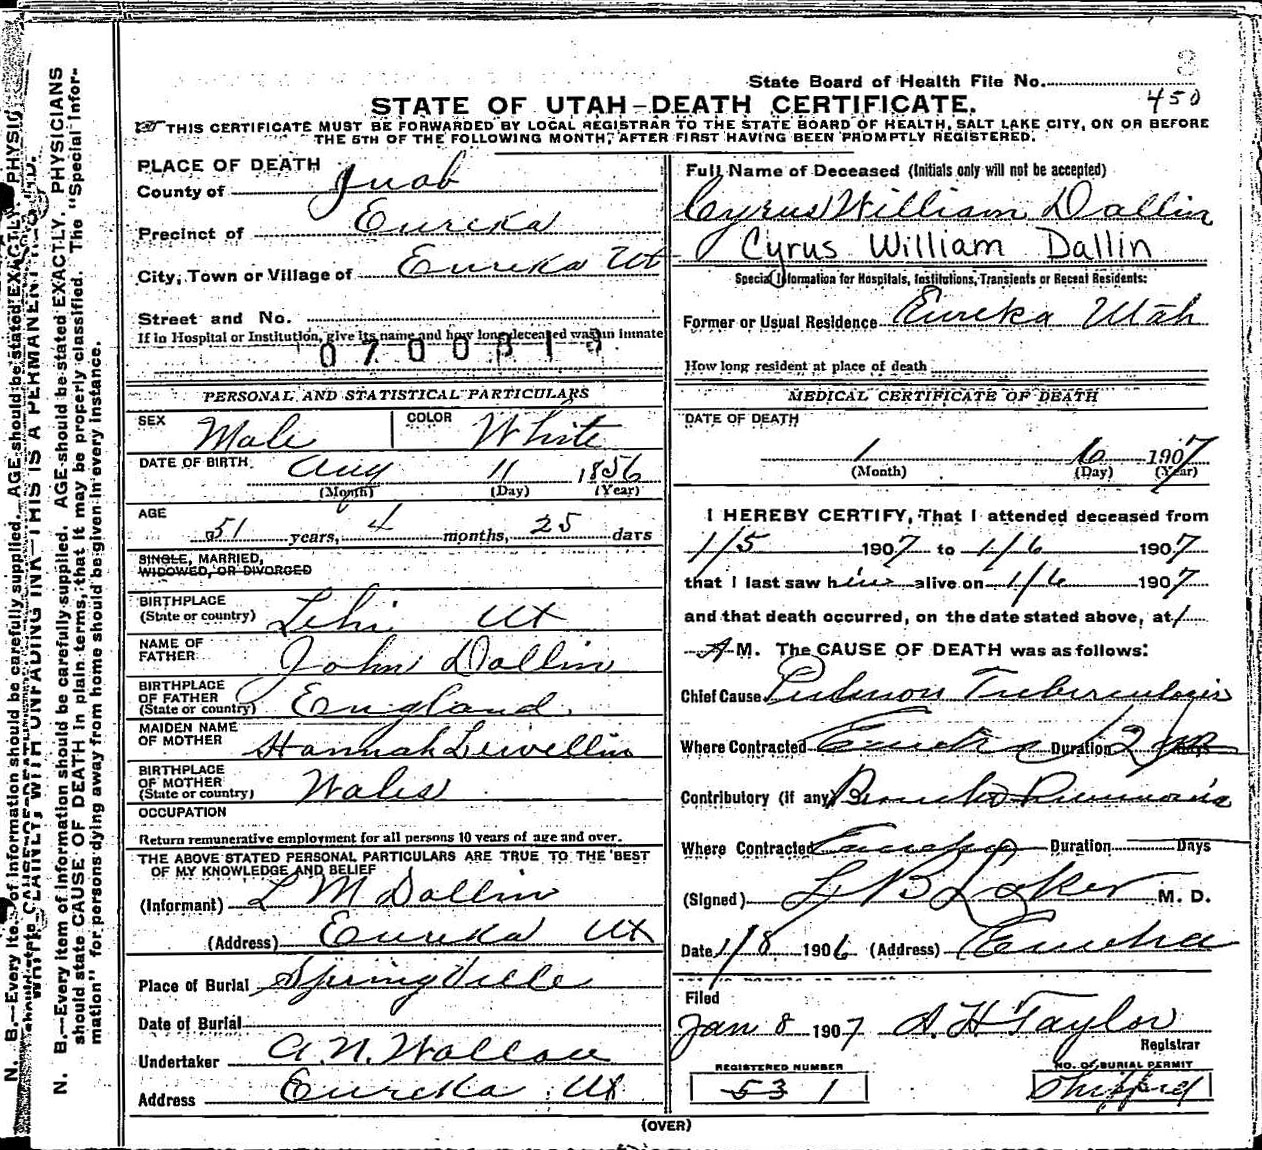 State Board of Health File No. 3
450
STATE OF UTAH—DEATH CERTIFICATE.
THIS CERTIFICATE MUST BE FORWARDED BY LOCAL REGISTRAR TO THE STATE BOARD OF HEALTH, SALT LAKE CITY, ON OR BEFORE
THE 5TH OF THE FOLLOWING MONTH, AFTER FIRST HAVING BEEN PROMPTLY REGISTERED.
PLACE OF DEATH
County of Juab
Precinct of Eureka
City, Town or Village of Eureka Ut
Street and No.
If in Hospital or Institution, give its name and how long deceased was an inmate
PERSONAL AND STATISTICAL PARTICULARS
SEX Male COLOR White
DATE OF BIRTH Aug 11 1856
(Month) (Day) (Year)
AGE 51 years, 4 months, 25 days
SINGLE, MARRIED,
WIDOWED, OR DIVORCED
BIRTHPLACE
(State or country) Lehi Ut
NAME OF
FATHER John Dallin
BIRTHPLACE
OF FATHER
(State or country) England
MAIDEN NAME
OF MOTHER Hannah Lewellin
BIRTHPLACE
OF MOTHER
(State or country) Wales
OCCUPATION
Return remunerative employment for all persons 10 years of age and over.
THE ABOVE STATED PERSONAL PARTICULARS ARE TRUE TO THE BEST
OF MY KNOWLEDGE AND BELIEF
(Informant) L M Dallin
(Address) Eureka Ut
Place of Burial Springville
Date of Burial
Undertaker A. N. Wallace
Address Eureka Ut
Full Name of Deceased (Initials only will not be accepted)
Cyrus William Dallin
Cyrus William Dallin
Special Information for Hospitals, Institutions, Transients or Recent Residents:
Former or Usual Residence Eureka Utah
How long resident at place of death
MEDICAL CERTIFICATE OF DEATH
DATE OF DEATH
1 6 1907
(Month) (Day) (Year)
I HEREBY CERTIFY, That I attended deceased from
1/5 1907 to 1/6 1907
that I last saw him alive on 1/6 1907
and that death occurred, on the date stated above, at 1
A M. The CAUSE OF DEATH was as follows:
Chief Cause Pulmon Tuberculosis
Where Contracted Eureka Duration 2 Days
Contributory (if any)
Where Contracted Eureka Duration Days
(Signed) M. D.
Date 1/8 1906 (Address) Eureka
Filed
Jan 8 1907 A. H Taylor
Registrar
REGISTERED NUMBER
53 1
NO. OF BURIAL PERMIT
Shipped
(OVER)
N. B.—Every item of information should be carefully supplied. AGE should be stated EXACTLY. PHYSICIANS
should state CAUSE OF DEATH in plain terms, that it may be properly classified. The "Special Infor-
mation" for persons dying away from home should be given in every instance.